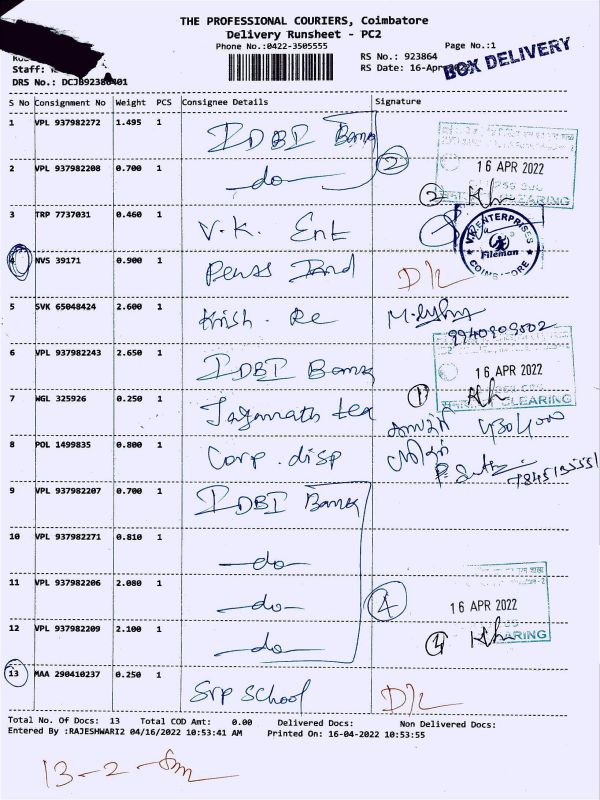 THE PROFESSIONAL COURIERS, Coimbatore
Delivery Runsheet - PC2
Phone No.:0422-3505555
Page No.:1
RS No.: 923864
Staff:
RS Date: 16-Apr
BOX DELIVERY
DRS No.:
S No Consignment No Weight PCS Consignee Details Signature
1 VPL 937982272 1.495 1 IDBI Bank
2 VPL 937982208 0.700 1 do 2 16 APR 2022
2 CLEARING
3 TRP 7737031 0.460 1 V.K. Ent V.K. ENTERPRISES Fileman COIMBATORE
4 NVS 39171 0.900 1 D/L
5 SVK 65048424 2.600 1 Krish. Re 9940909002
6 VPL 937982243 2.650 1 IDBI Bank 16 APR 2022
7 WGL 325926 0.250 1 Jagannath tea 1 CLEARING
8 POL 1499835 0.800 1 Corp. disp
9 VPL 937982207 0.700 1 IDBI Bank
10 VPL 937982271 0.810 1 do
11 VPL 937982206 2.080 1 do 4 16 APR 2022
12 VPL 937982209 2.100 1 do 4
13 MAA 290410237 0.250 1 Srp School D/L
Total No. Of Docs: 13 Total COD Amt: 0.00 Delivered Docs: Non Delivered Docs:
Entered By :RAJESHWARI2 04/16/2022 10:53:41 AM Printed On: 16-04-2022 10:53:55
13-2-